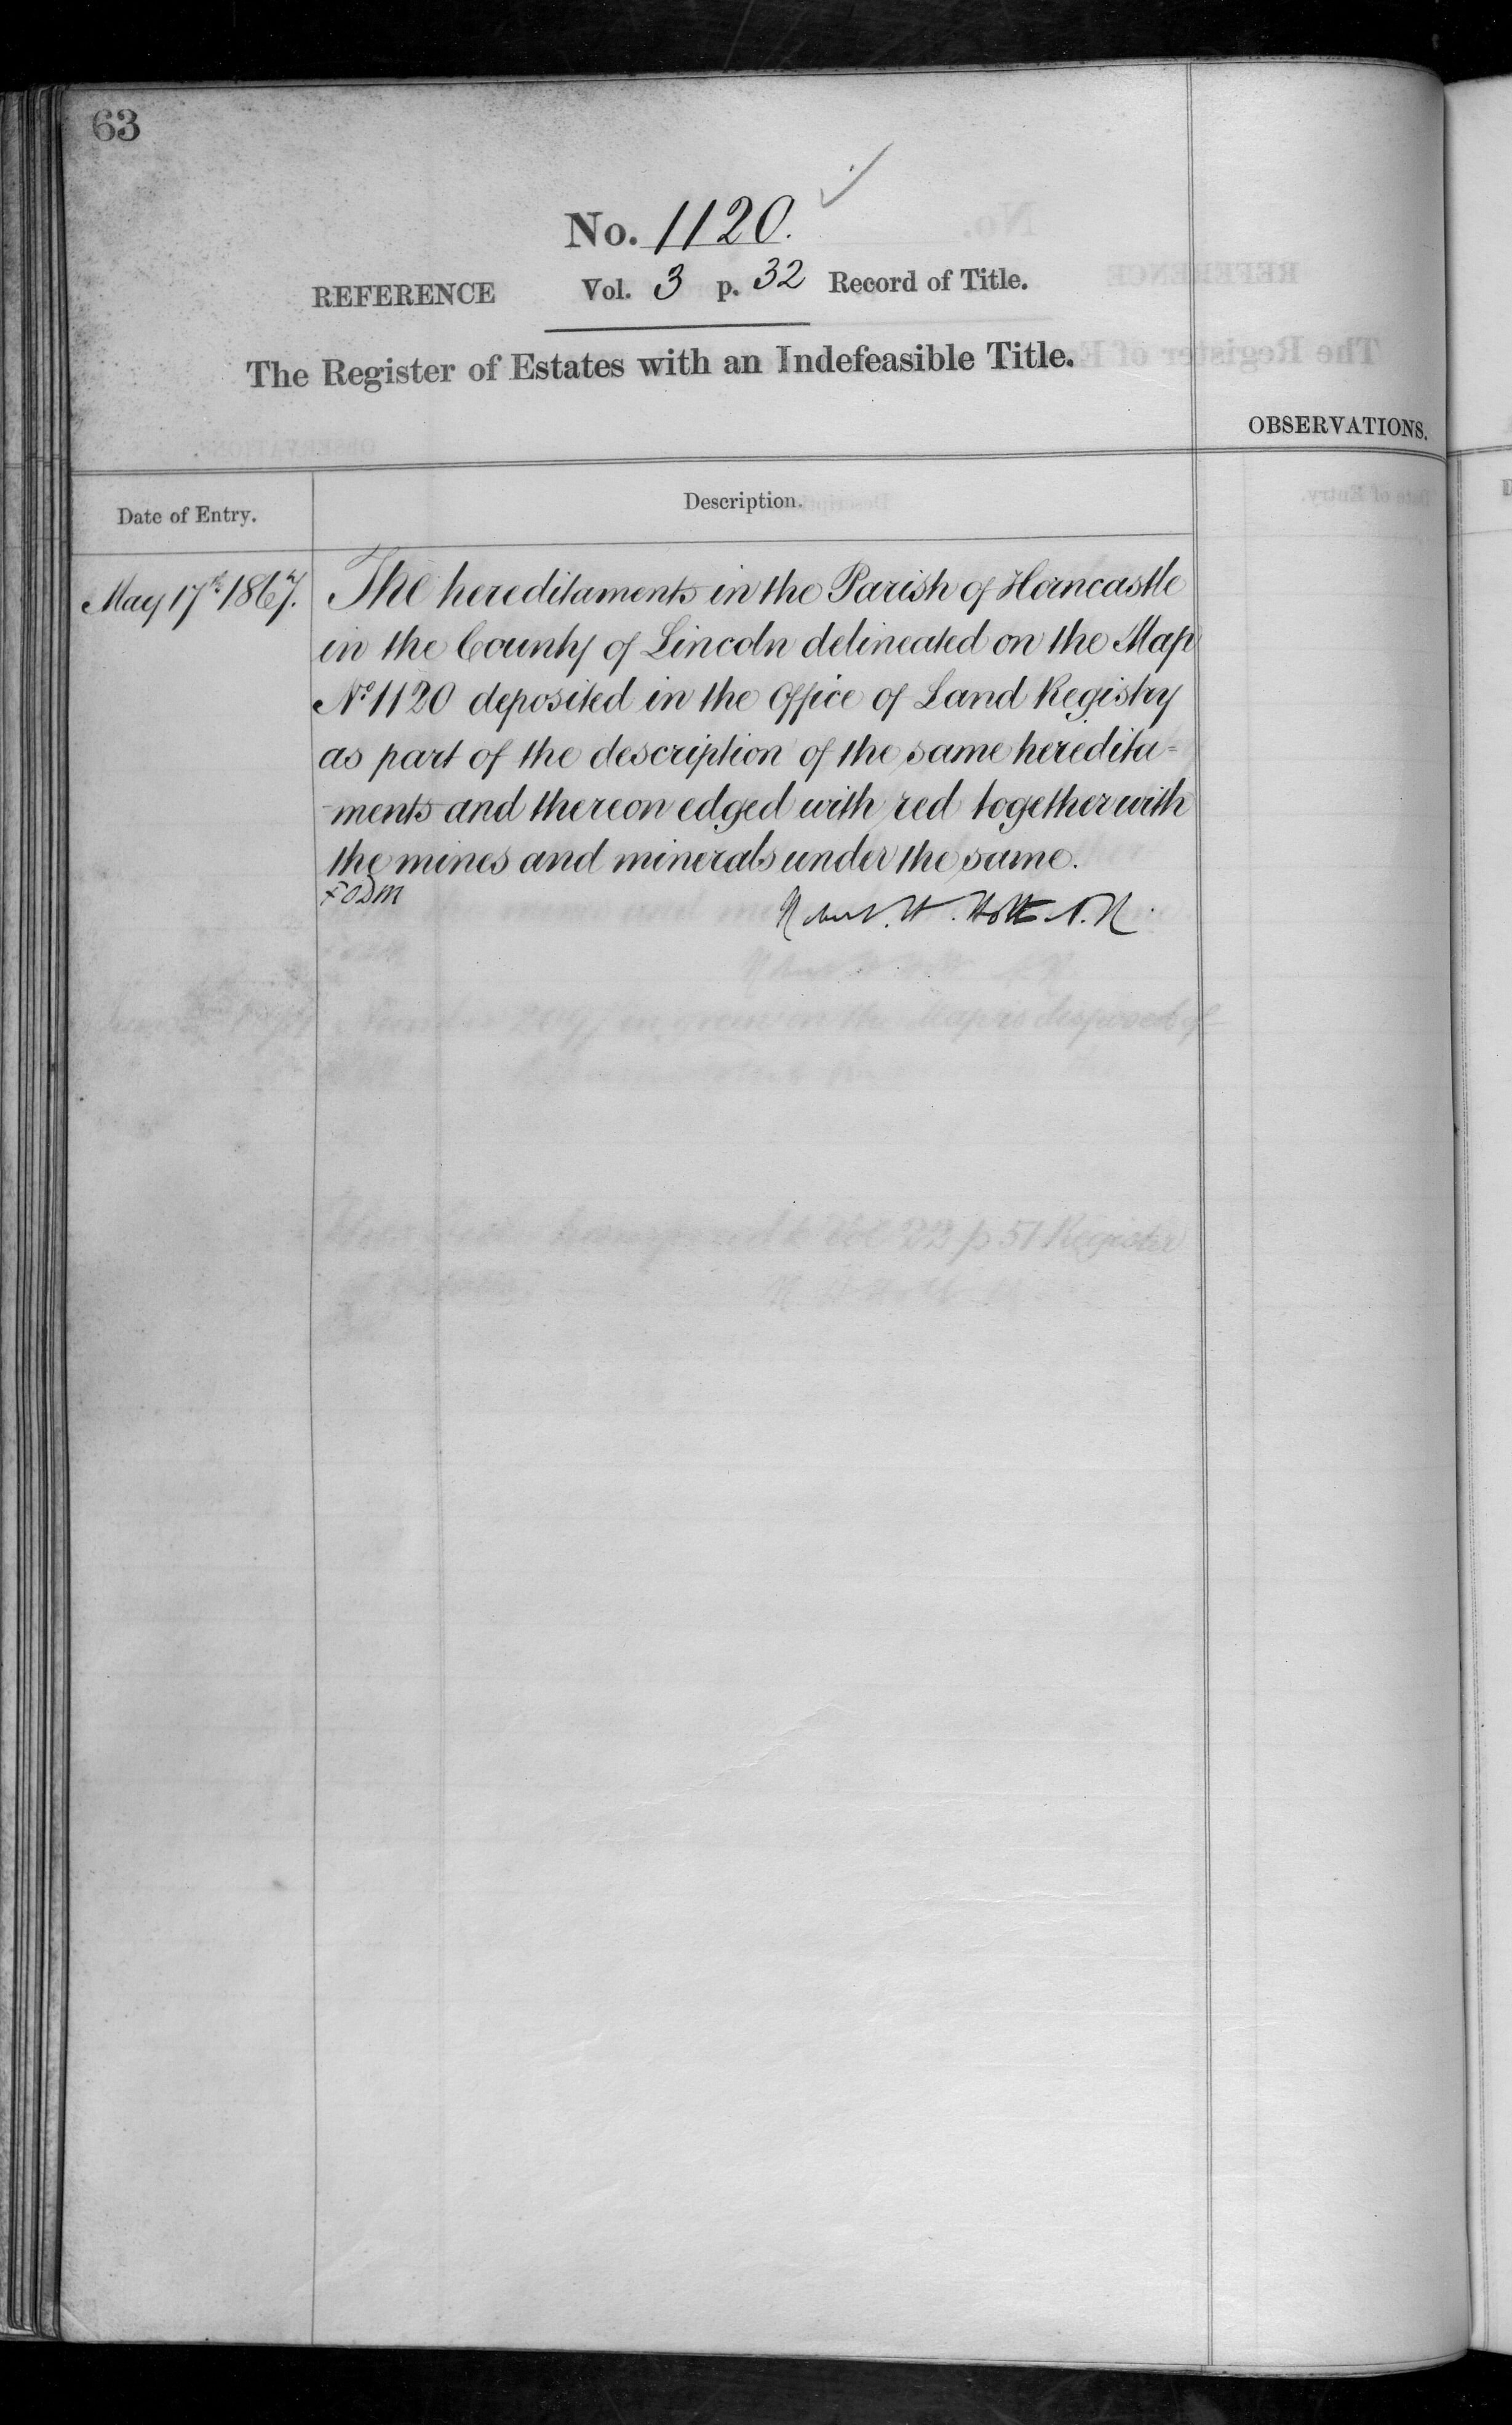 63
No. 1120.
REFERENCE Vol. 3 p. 32 Record of Title.
The Register of Estates with an Indefeasible Title.
OBSERVATIONS.
Date of Entry.
Description.
May 17th 1867.
The hereditaments in the Parish of Horncastle
in the County of Lincoln delineated on the Map
No 1120 deposited in the Office of Land Registry
as part of the description of the same heredita=
-ments and thereon edged with red together with
the mines and minerals under the same.
Robert. H. Holt A.R.